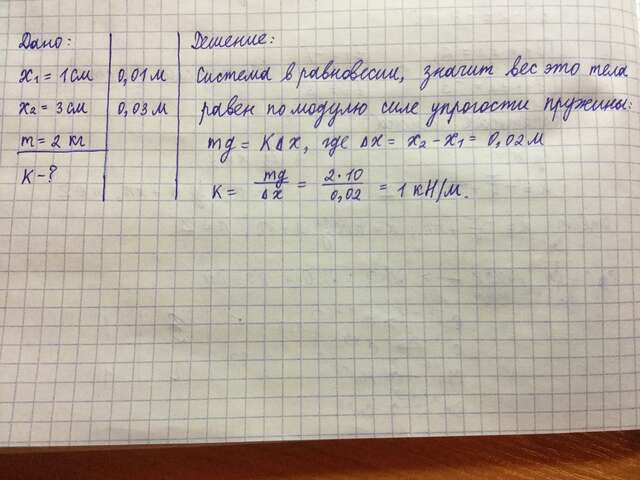 Дано:
x₁ = 1 см 0,01 м
x₂ = 3 см 0,03 м
m = 2 кг
K - ?
Решение:
Система в равновесии, значит вес это тела
равен по модулю силе упругости пружины:
mg = KΔx, где Δx = x₂ - x₁ = 0,02 м
K = mg/Δx = 2·10/0,02 = 1 кН/м.